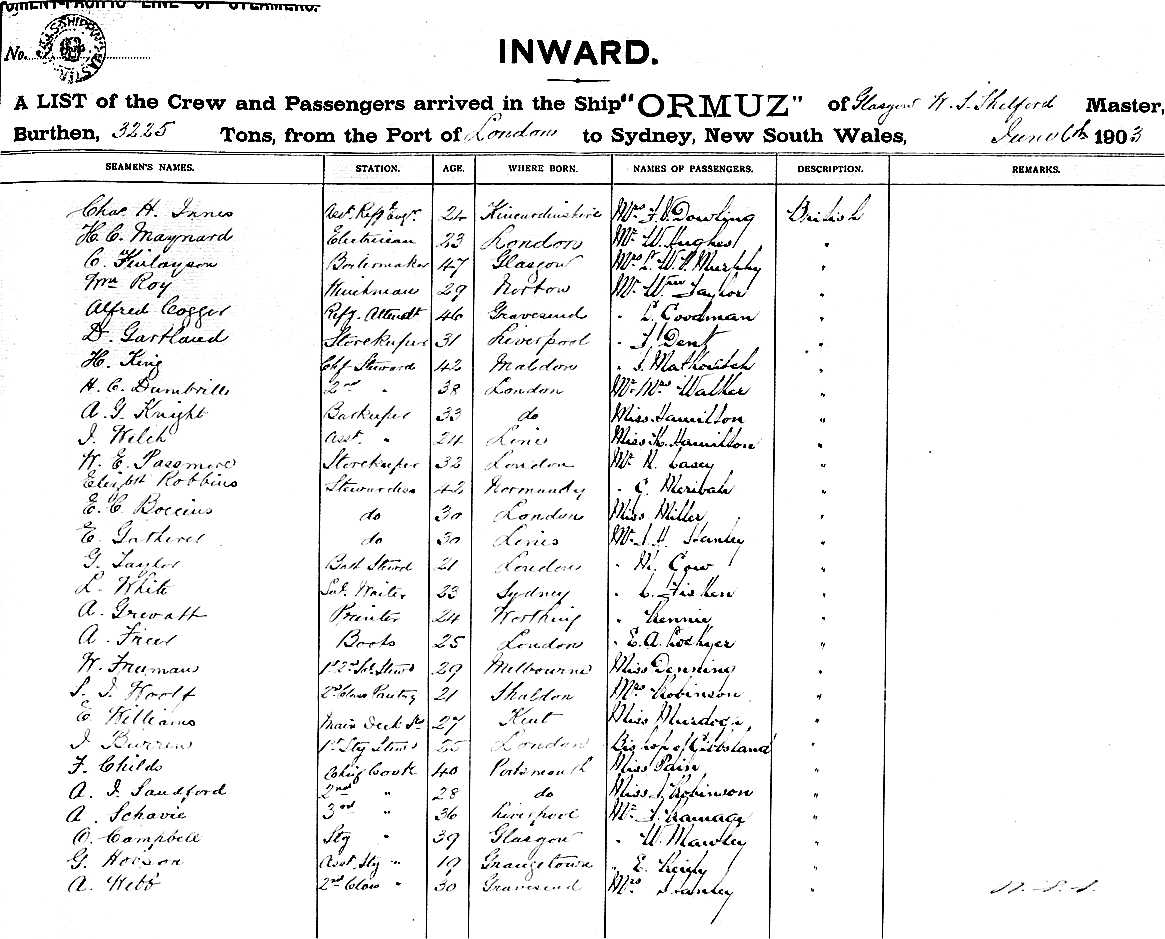 ORIENT-PACIFIC LINE OF STEAMERS.
No.
INWARD.
A LIST of the Crew and Passengers arrived in the Ship "ORMUZ" of Glasgow W. S. Shelford Master,
Burthen, 3225 Tons, from the Port of London to Sydney, New South Wales, June 6th 1903
SEAMEN'S NAMES. STATION. AGE. WHERE BORN. NAMES OF PASSENGERS. DESCRIPTION. REMARKS.
Chas. H. Innes Asst. Refg Engr. 24 Kincardinshire Mrs Dowling British
H. C. Maynard Electrician 23 London Mr. W. Hughes "
C. Finlayson Boilermaker 47 Glasgow Mrs L. W. Murphy "
Wm Roy 29 Mr. Wm Taylor "
Alfred Cogger Refg. Attendt 46 Gravesend " L. Goodman "
D. Gartland Storekeeper 31 Liverpool " J. Dent "
H. King Chf Steward 42 Maldon "
H. C. Dumbrille 2nd " 38 London Mr. Mrs Walker "
A. G. Knight Barkeeper 33 do Miss Hamilton "
J. Welch Asst. " 24 Miss K. Hamilton "
W. E. Passmore Storekeeper 32 London Mr. Casey "
Robbins Stewardess 42 Normandy " C. "
E. C. Boccius do 30 London Miss Miller "
E. do 30 Mr. Stanley "
G. Taylor Bath Steward 21 London " Cow "
L. White Sal. Waiter 23 Sydney " "
A. Grevatt Printer 24 Worthing " Rennie "
A. Boots 25 London " E. A. Lockyer "
W. Freeman 29 Melbourne Miss Denning "
S. J. Woolf 2nd Class Pantry 21 Shaldon Mrs Robinson "
E. Williams Main Deck 27 Kent Miss Murdoch "
J. London Bishop of Gippsland "
F. Childs Chief Cook 40 Portsmouth Miss Pain "
A. J. Sandford 2nd " 28 do Miss J. Robinson "
A. Schavie 3rd " 36 Liverpool Mr. J. Ramage "
C. Campbell Stg " 39 Glasgow " W. Mawley "
G. Hobson Asst. Stg " 19 Grangetown " E. "
A. Webb 2nd Class " 30 Gravesend Mrs Stanley "